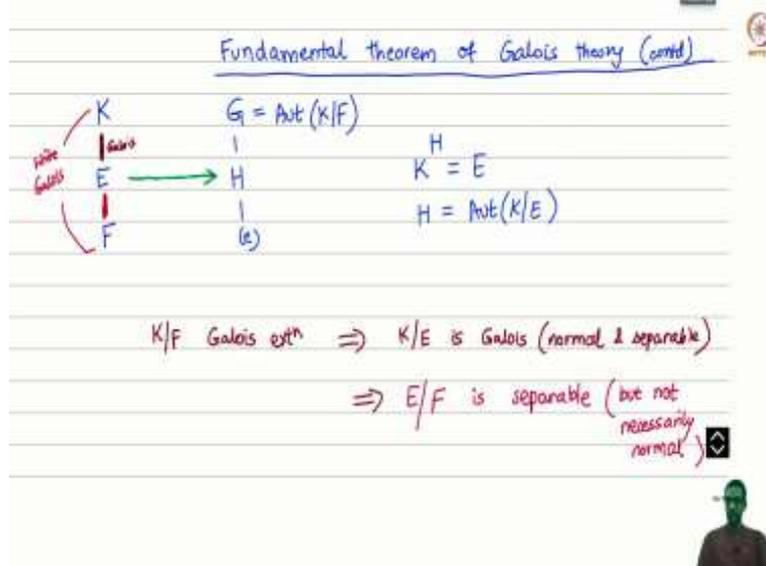 Fundamental theorem of Galois theory (contd)
K
Galois
E
F
Galois
G = Aut (K/F)
H
(e)
K^H = E
H = Aut(K/E)
K/F Galois extⁿ ⇒ K/E is Galois (normal & separable)
⇒ E/F is separable (but not
necessarily
normal)